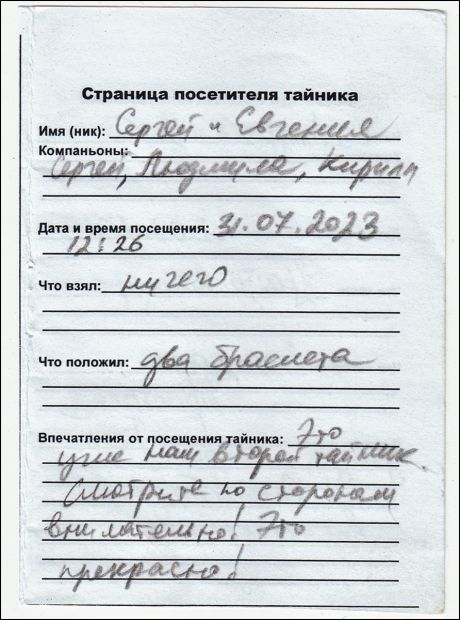 Страница посетителя тайника
Имя (ник): Сергей и Евгения
Компаньоны:
Сергей, Людмила, Кирилл
Дата и время посещения: 31.07.2023
12:26
Что взял: ничего
Что положил: два браслета
Впечатления от посещения тайника: Это
уже наш второй тайник.
Смотрите по сторонам
внимательно! Это
прекрасно!